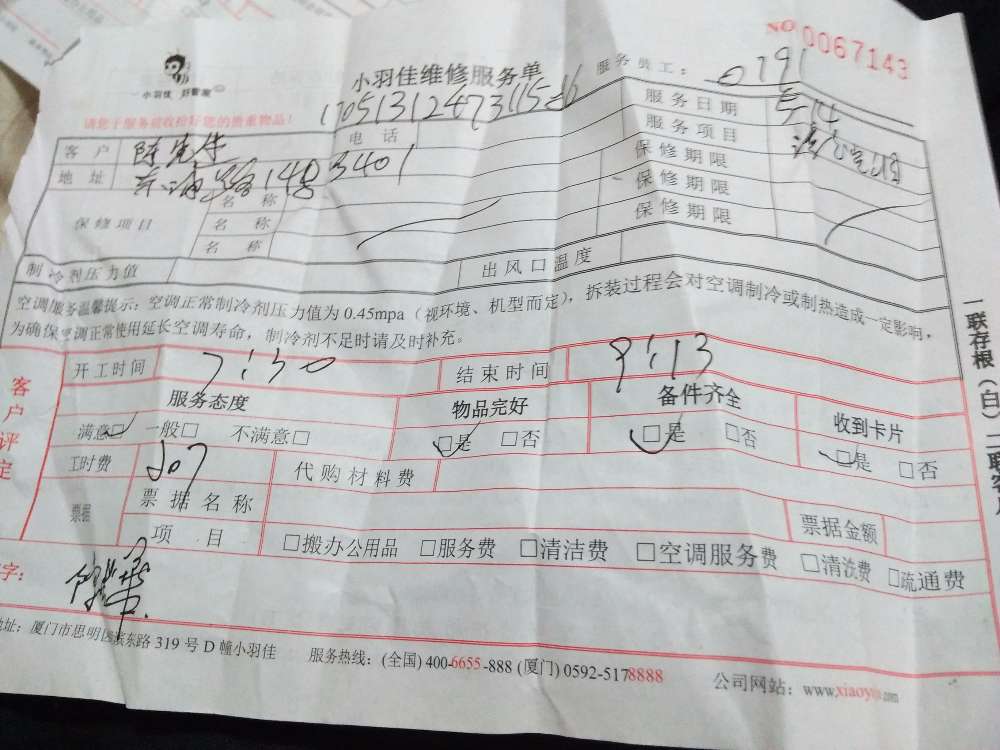 NO 0067143
小羽佳维修服务单
服务员工: 0191
小羽佳 好管家
请您于服务前收拾好您的贵重物品!
客户 陈先生 电话 服务日期
地址 14号 3401 服务项目
保修项目 名称 保修期限
名称 保修期限
名称 保修期限
制冷剂压力值 出风口温度
空调服务温馨提示:空调正常制冷剂压力值为0.45mpa(视环境、机型而定),拆装过程会对空调制冷或制热造成一定影响,
为确保空调正常使用延长空调寿命,制冷剂不足时请及时补充。
客户评定
开工时间 7:30 结束时间 9:13
服务态度 物品完好 备件齐全 收到卡片
满意□ 一般□ 不满意□ □是 □否 □是 □否 □是 □否
工时费 207 代购材料费
票据 票据名称 票据金额
项目 □搬办公用品 □服务费 □清洁费 □空调服务费 □清洗费 □疏通费
字:
地址:厦门市思明区滨东路319号D幢小羽佳 服务热线:(全国)400-6655-888 (厦门)0592-5178888 公司网站:www.xiaoyu
一联存根(白)二联客户